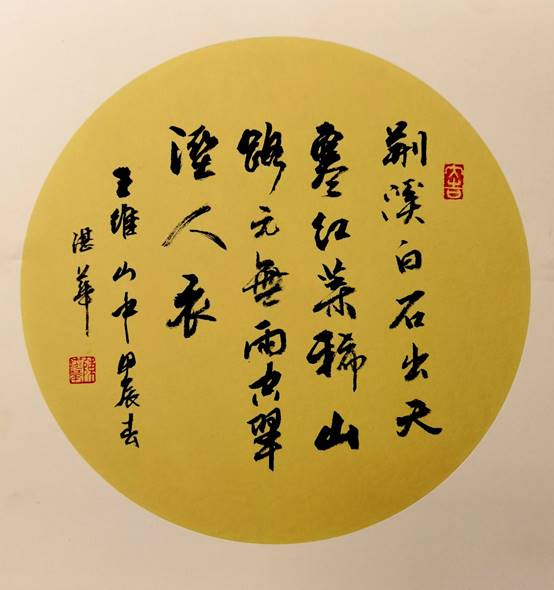 大吉
荆溪白石出天
寒红葉稀山
路元無雨空翠
溼人衣
王維山中甲辰春
湛華